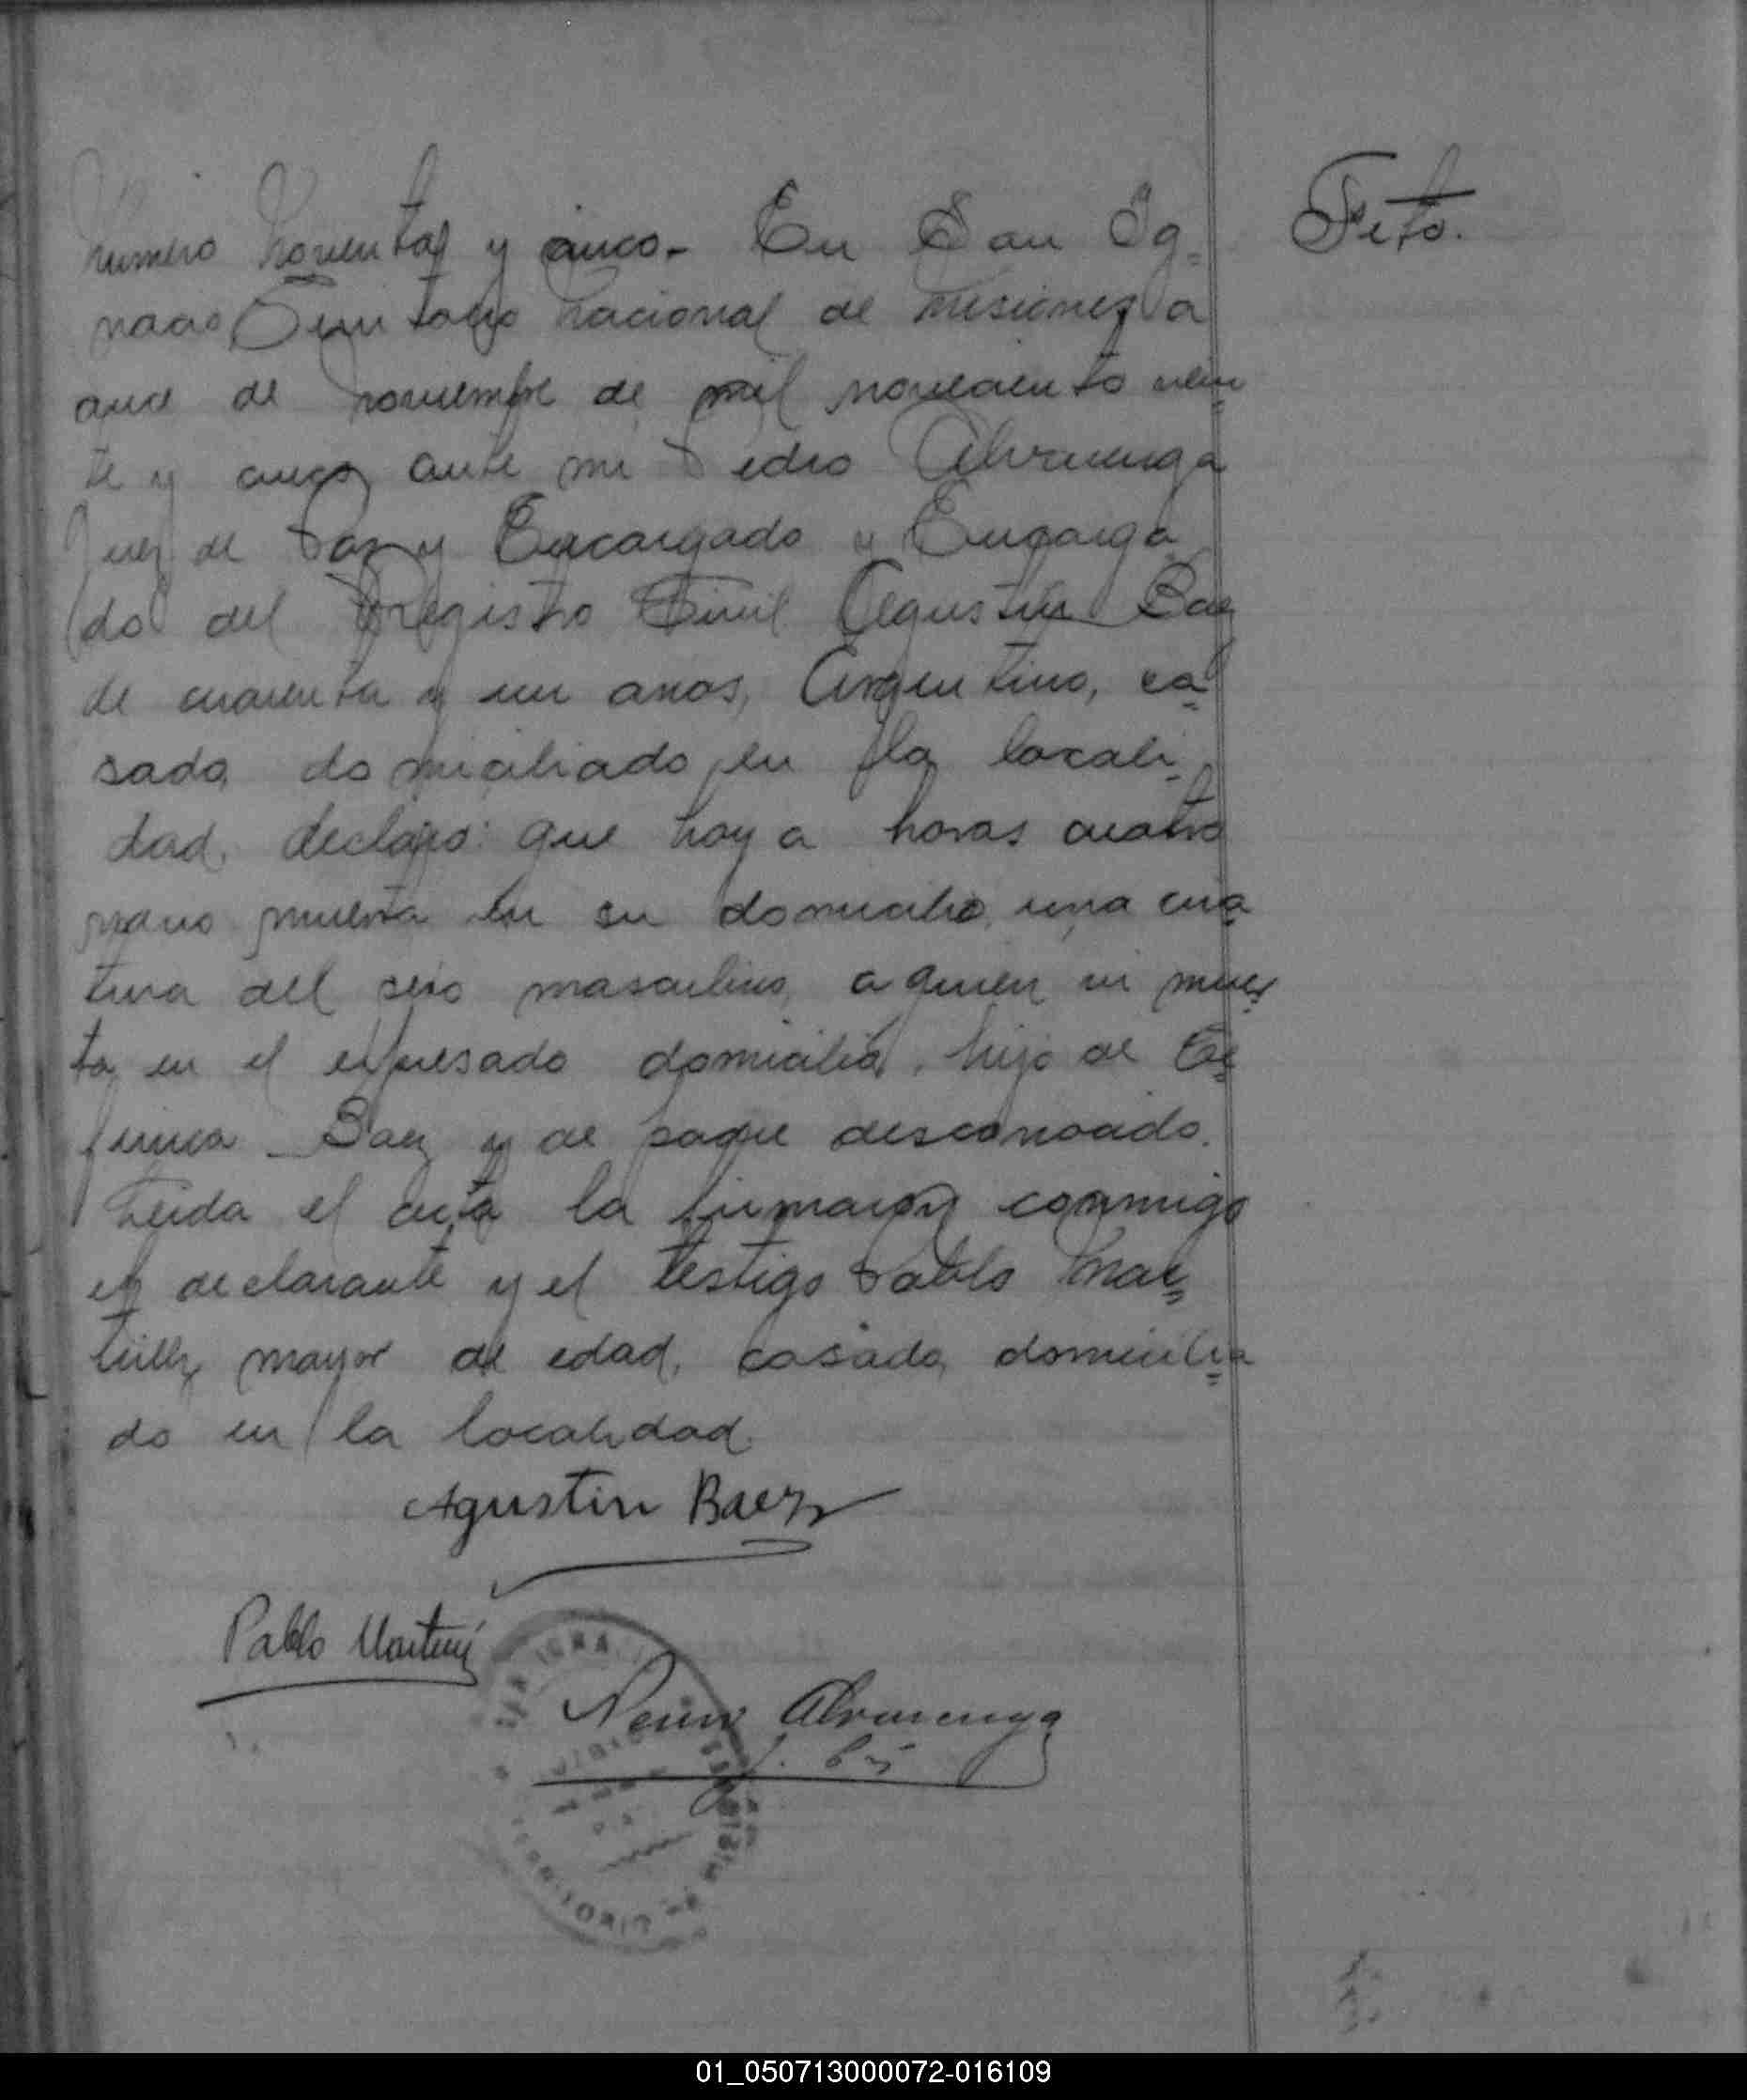 Feto.
Numero noventa y cinco. En San Ig=
nacio Territorio Nacional de Misiones a
once de noviembre de mil noveciento vein=
te y cinco ante mi Pedro Alvarenga
Juez de Paz y Encargado y Encarga
do del Registro Civil Agustin Baez
de cuarenta y un anos, Argentino, ca=
sado, domiciliado en la locali=
dad, declaro: que hoy a horas cuatro
nacio muerta en su domicilio, una cria=
tura del sexo masculino, a quien vi muer=
ta en el expresado domicilio, hijo de
Baez y de padre desconocido.
Leida el acta la firmaron conmigo
el declarante y el testigo Pablo Mar=
mayor de edad, casado, domicilia=
do en la localidad.
Agustin Baez
Pablo Martinez
Alvarenga
01_050713000072-016109